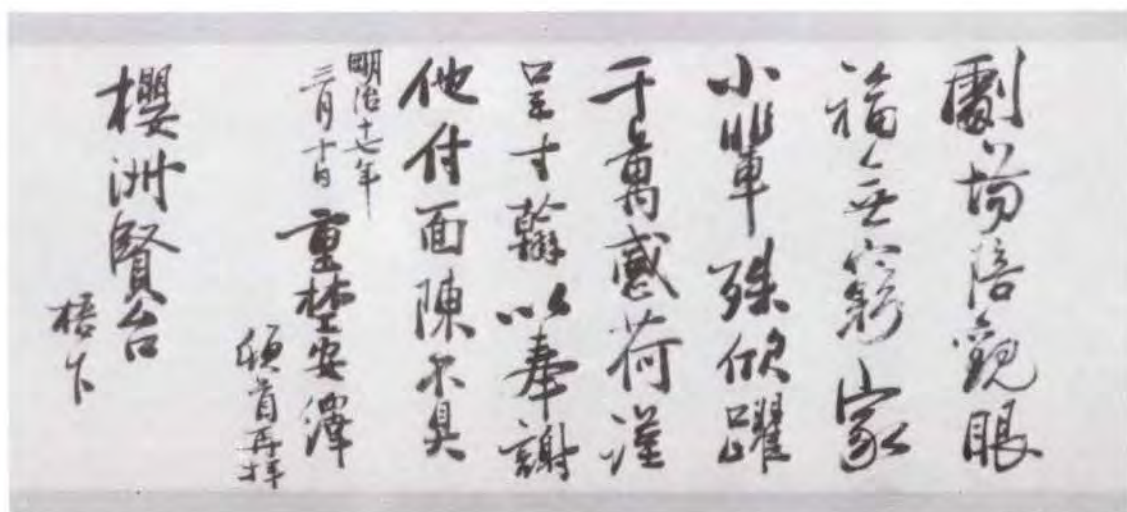 劇場陪觀眼
福無窮家
小輩殊欣躍
千萬感荷謹
呈寸翰以奉謝
他付面陳不具
明治十七年
三月十日
重埜安繹
頓首再拜
櫻洲賢台
梧下